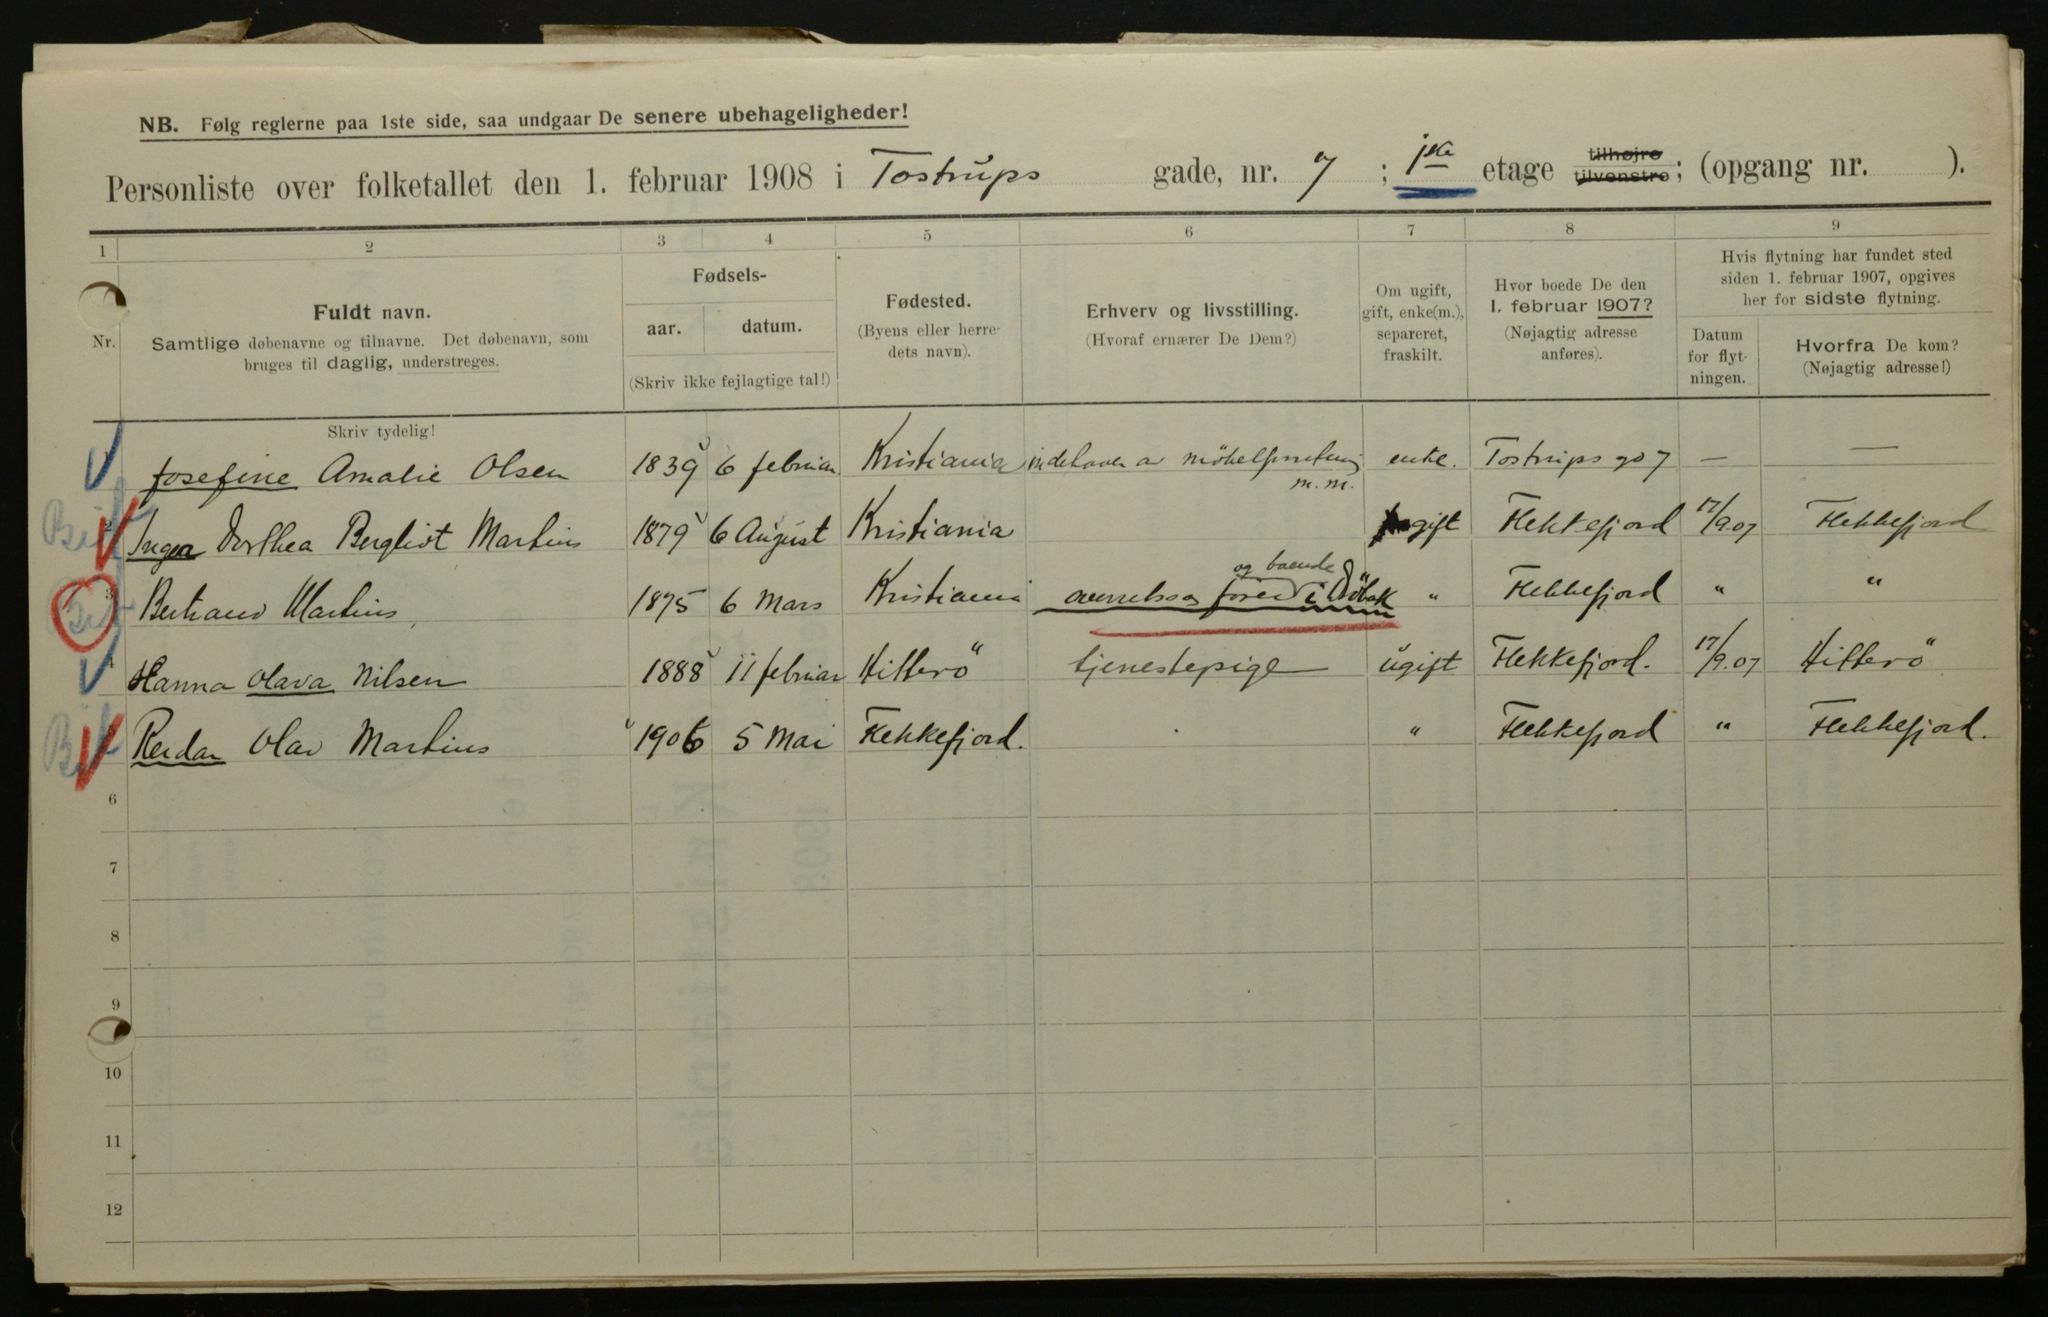 NB. Følg reglerne paa 1ste side, saa undgaar De senere ubehageligheder!
Personliste over folketallet den 1. februar 1908 i Tostrups gade, nr. 7 ; 1ste etage tilhøjre tilvenstre ; (opgang nr. ).
1 2 3 4 5 6 7 8 9
Nr.
Fuldt navn.
Samtlige døbenavne og tilnavne. Det døbenavn, som
bruges til daglig, understreges.
Skriv tydelig!
Fødsels-
aar. datum.
(Skriv ikke fejlagtige tal!)
Fødested.
(Byens eller herre-
dets navn).
Erhverv og livsstilling.
(Hvoraf ernærer De Dem?)
Om ugift,
gift, enke(m.),
separeret,
fraskilt.
Hvor boede De den
1. februar 1907?
(Nøjagtig adresse
anføres).
Hvis flytning har fundet sted
siden 1. februar 1907, opgives
her for sidste flytning.
Datum
for flyt-
ningen.
Hvorfra De kom?
(Nøjagtig adresse!)
Josefine Amalie Olsen 1839 6 februar Kristiania indehaver av enke. Tostrups 7 — —
m.m.
2 Inga Dorthea Bergliot Martins 1879 6 August Kristiania gift Flekkefjord 17/9.07 Flekkefjord
og boende
3 Bertrand Martins 1875 6 Mars Kristiania i " Flekkefjord " "
4 Hanna Olava Nilsen 1888 11 februar Hitterö tjenestepige ugift Flekkefjord. 17/9.07 Hitterö
Reidar Olav Martins 1906 5 Mai Flekkefjord. " Flekkefjord " Flekkefjord.
6
7
8
9
10
11
12